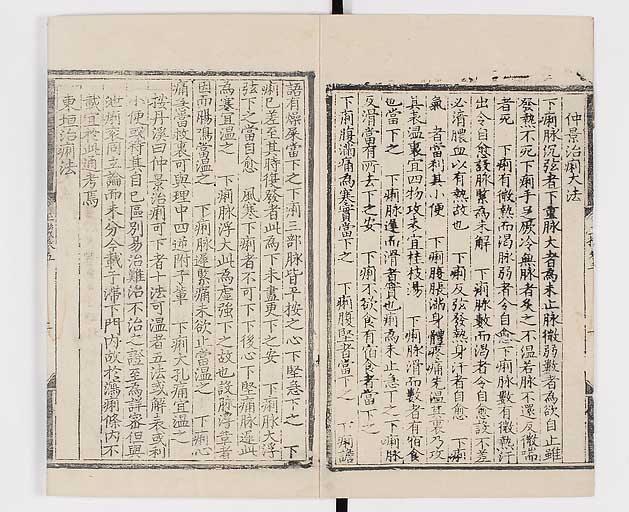 仲景治痢大法
下痢脉沉弦者下重脉大者為未止脉微弱數者為欲自止雖
發熱不死下痢手足厥冷無脉者灸之不温若脉不還反微喘
者死　下痢有微熱而渴脉弱者令自愈下痢脉數有微熱汗
出令自愈設脉緊為未解　下痢脉數而渴者令自愈設不差
必清膿血以有熱故也　下痢反弦發熱身汗者自愈　下痢
氣者當利其小便　下痢腹脹滿身體疼痛先温其裏乃攻
其表温裏宜四物攻表宜桂枝湯　下痢脉滑而數者有宿食
也當下之　下痢脉遲而滑者實也痢為未止急下之下痢脉
反滑當有所去下之安　下痢不欲食有宿食者當下之
下痢腹滿痛為寒實當下之　下痢腹堅者當下之　下痢譫
語有燥屎當下之下痢三部脉皆平按之心下堅急下之　下
痢已差至其時復發者此為下未盡更下之安　下痢脉大浮
弦下之當自愈　風寒下痢者不可下下後心下堅痛脉遲此
為寒宜温之　下痢脉浮大此為虛強下之故也設脉浮革者
因而腸鳴當温之　下痢脉遲緊痛未欲止當温之　下痢心
痛急當救裏可與理中四逆附子輩　下痢大孔痛宜温之
按丹溪曰仲景治痢可下者十法可温者五法或解表或利
小便或待其自已區別易治難治不治之證至為詳審但與
泄痢衮同立論而未分今載于滯下門内故於瀉痢條内不
載宜於此通考焉
東垣治痢法